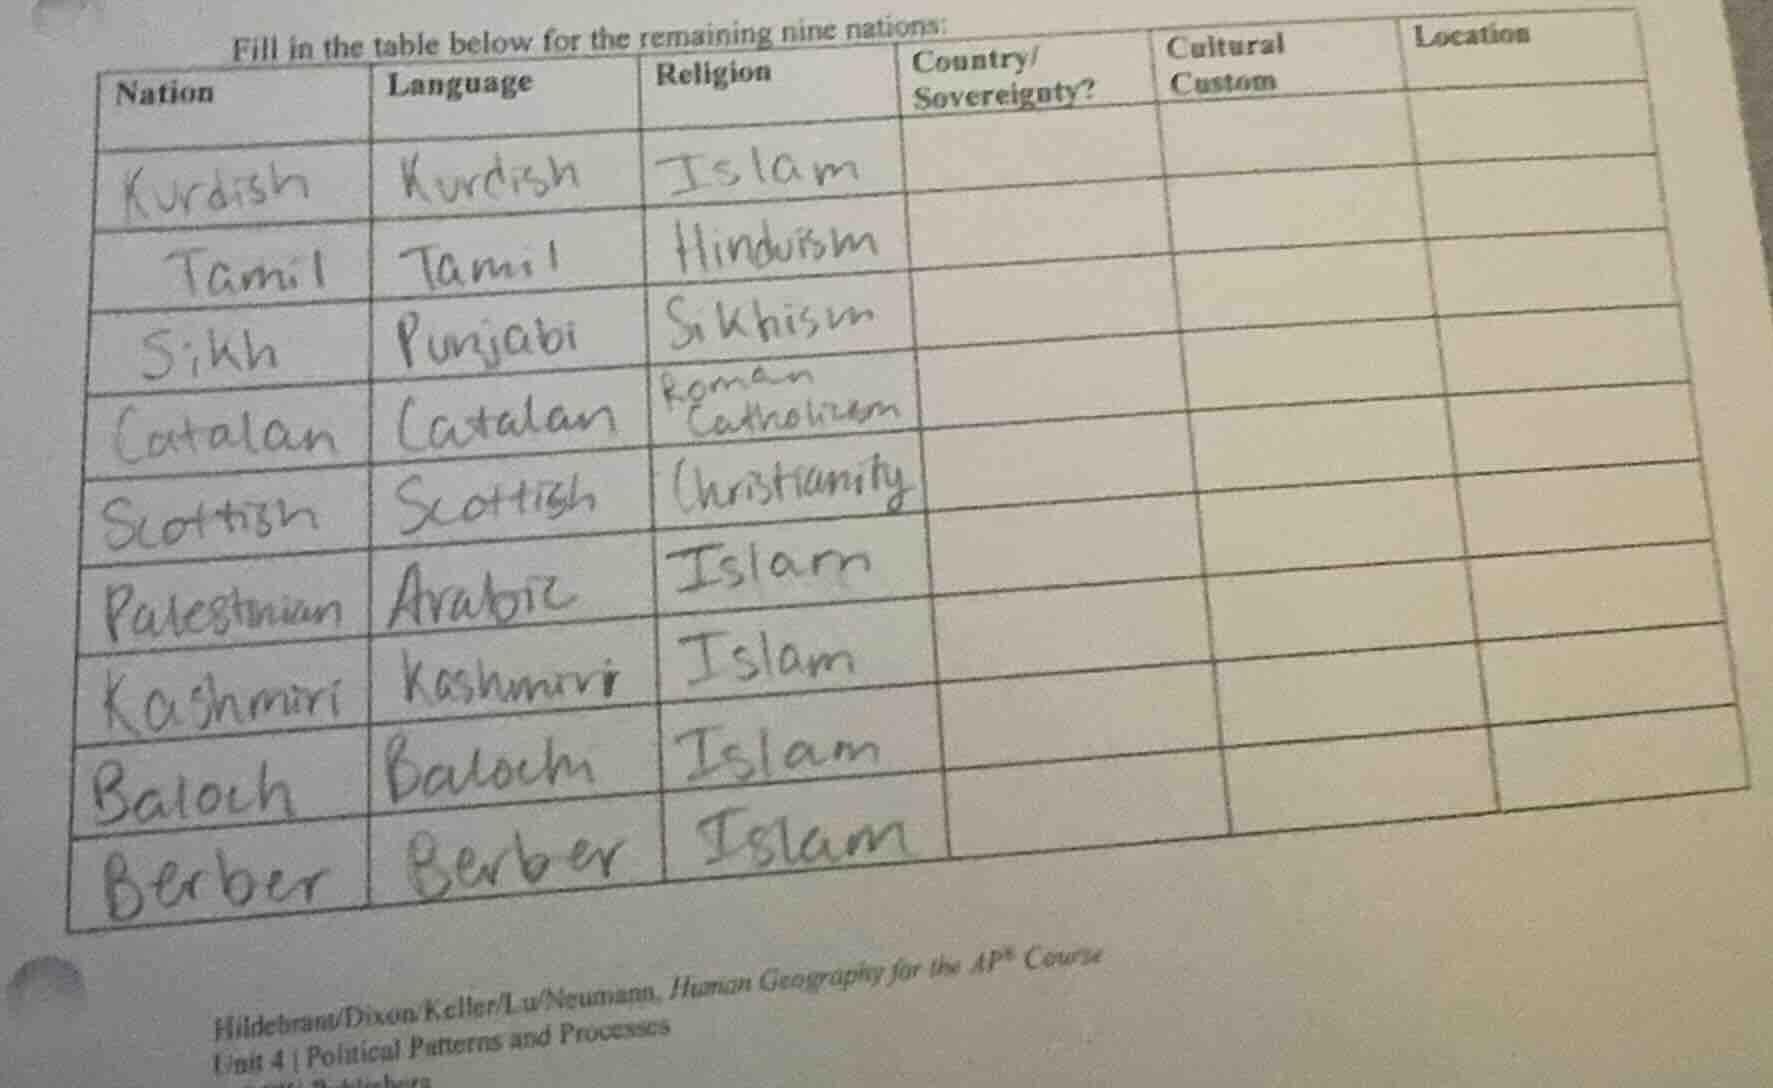 Fill in the table below for the remaining nine nations:
Nation Language Religion Country/ Sovereignty? Cultural Custom Location
Kurdish Kurdish Islam
Tamil Tamil Hinduism
Sikh Punjabi Sikhism
Catalan Catalan Roman Catholicism
Scottish Scottish Christianity
Palestinian Arabic Islam
Kashmiri Kashmiri Islam
Baloch Balochi Islam
Berber Berber Islam
Hildebrant/Dixon/Keller/Lu/Neumann, Human Geography for the AP® Course
Unit 4 | Political Patterns and Processes
Publishers